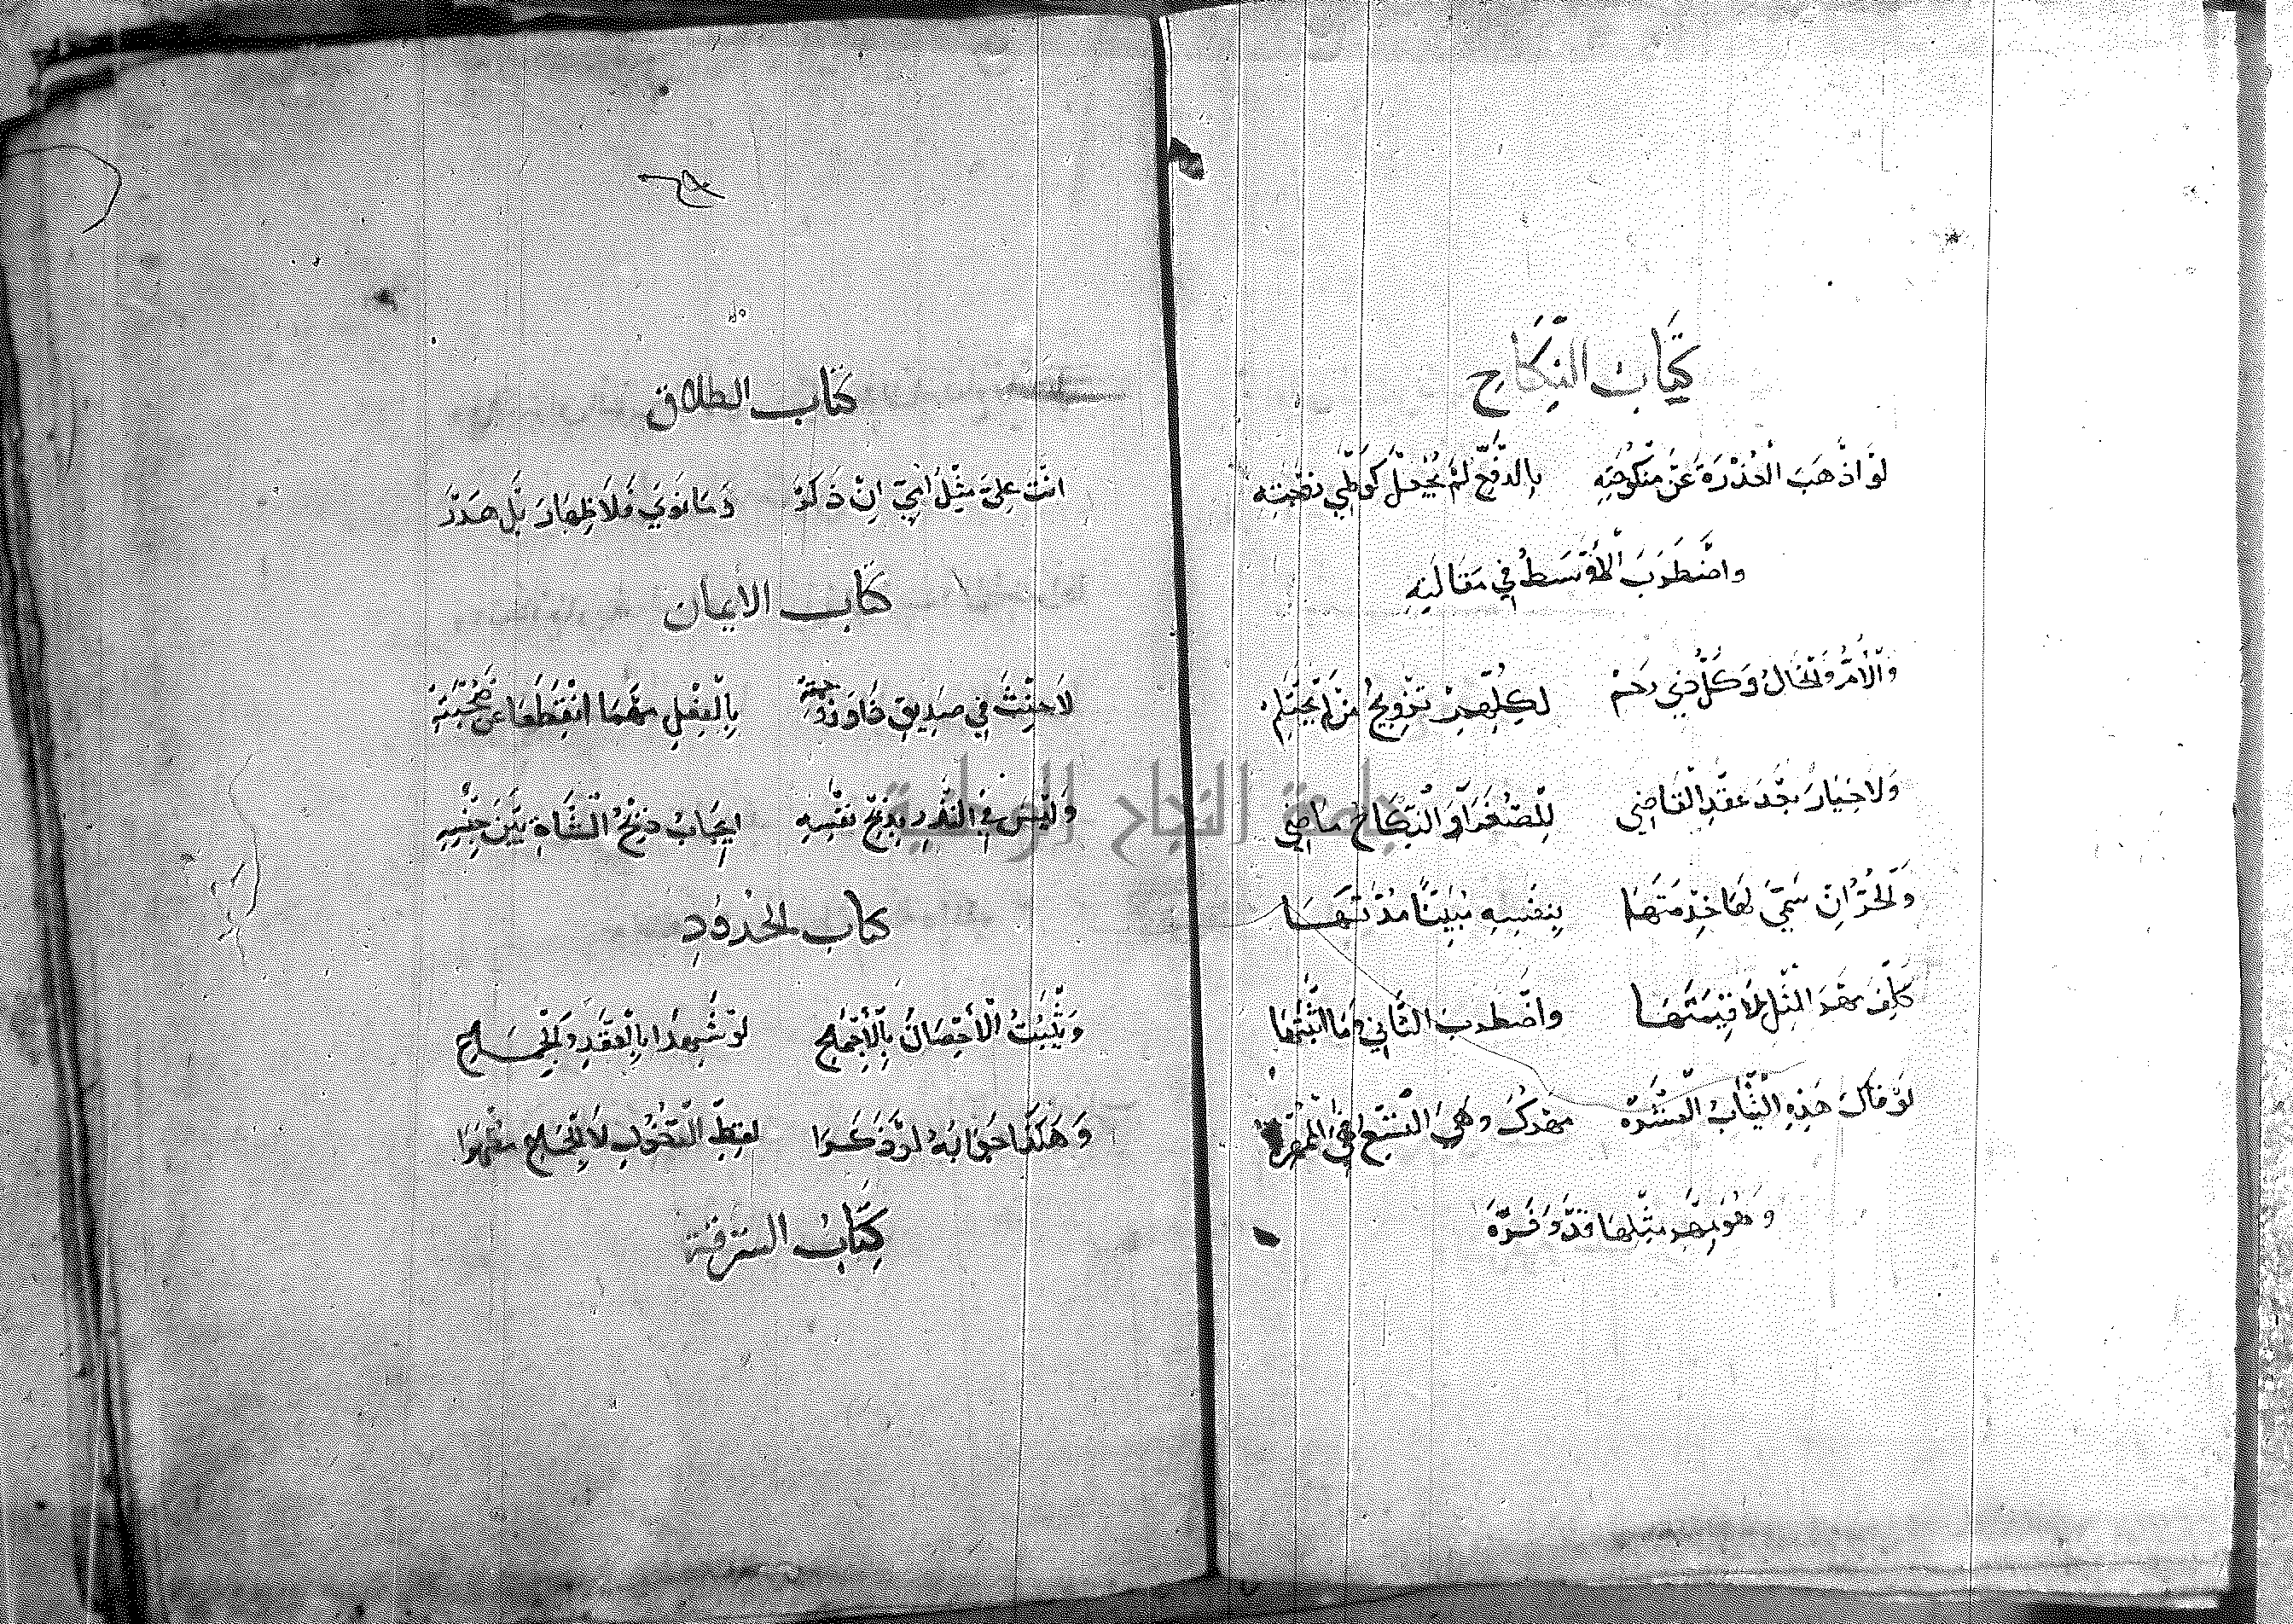 كِتَابُ النِّكَاحِ
لَوْ اَذْهَبَ الْعُذْرَةَ عَنْ مَنْكُوحَتِهِ بِالدَّفْعِ لَمْ يُجْعَلْ كَوَطْيِ
وَاضْطَرَبَ الْأَوْسَطُ فِي مَقَالَتِهِ
وَالْأُمُّ وَالْخَالُ وَكُلُّ ذِي رَحِمْ لِكُلِّهِمْ تَزْوِيجُ مَنْ لَمْ يَحْتَلِمْ
وَلَا خِيَارَ بَعْدَ عَقْدِ الْقَاضِي لِلصُّغَرَا وَالنِّكَاحُ مَاضِي
وَالْحُرُّ اِنْ سَمَّى لَهَا خِدْمَتَهَا بِنَفْسِهِ مُبَيِّنًا مُدَّتَهَا
كَلِفَ مَهْرَ الْمِثْلِ لَا قِيمَتَهَا وَاضْطَرَبَ الثَّانِي وَمَا اَثْبَتَهَا
لَوْ قَالَ هَذِهِ الثِّيَابُ الْعَشَرَهْ مَهْرُكِ وَهْيَ التِّسْعُ
وَهُوَ بِمَهْرِ مِثْلِهَا قَدْ وَفَّرَهْ
كتاب الطلاق
اَنْتِ عَلَيَّ مِثْلُ اُمِّي اِنْ ذَكَرْ وَمَا نَوَى فَلَا ظِهَارَ بَلْ هَدَرْ
كتاب الأيمان
لَا حِنْثَ فِي صَدِيقِ ذَا وَزَوْجَتِهْ بِالْفِعْلِ مَهْمَا انْقَطَعَا عَنْ صُحْبَتِهْ
وَلَيْسَ فِي النَّذْرِ بِذَبْحِ نَفْسِهِ اِيجَابُ ذَبْحِ الشَّاةِ بَيْنَ جِنْسِهِ
كتاب الحُدُودِ
وَيَثْبُتُ الْأِحْصَانُ بِالْأِجْمَاعِ لَوْ شَهِدَا بِالْعَقْدِ وَالْجِمَاعِ
وَهَكَذَا جَوَابُهُ لَوْ ذَكَرَا لَفْظَ الدُّخُولِ لَا الْجِمَاعِ
كِتَابُ السَّرِقَة
جامعة النجاح الوطنية